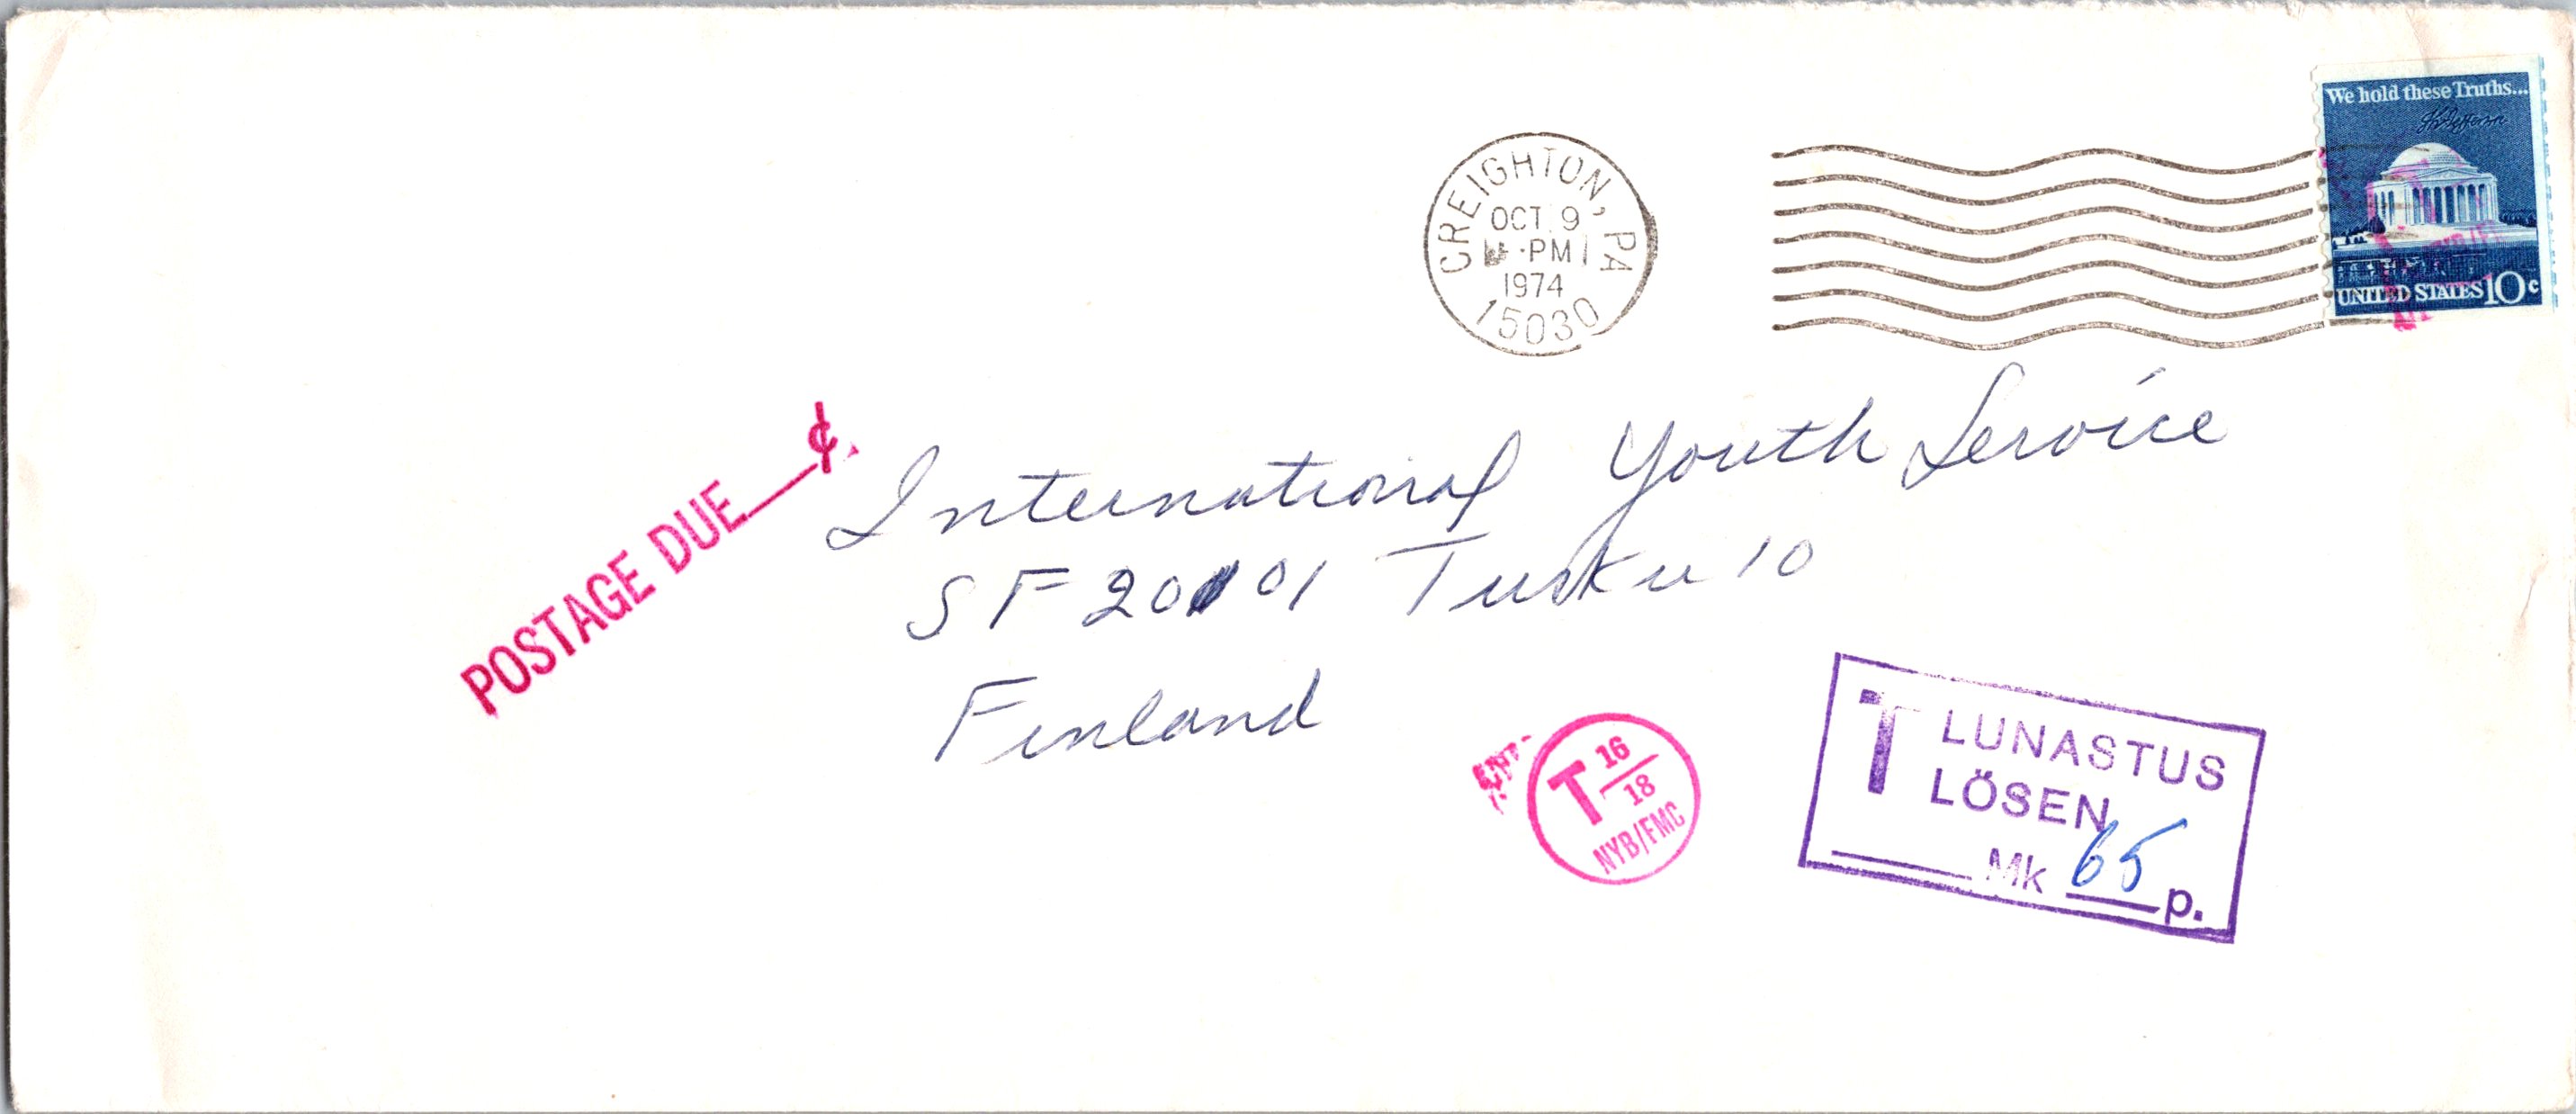 We hold these Truths...
Th Jefferson
UNITED STATES 10c
CREIGHTON, PA
OCT 9
PM
1974
15030
POSTAGE DUE ___¢.
International Youth Service
SF 20101 Turku 10
Finland
T 16/18
NYB/FMC
T LUNASTUS
LÖSEN
___ Mk 65 p.